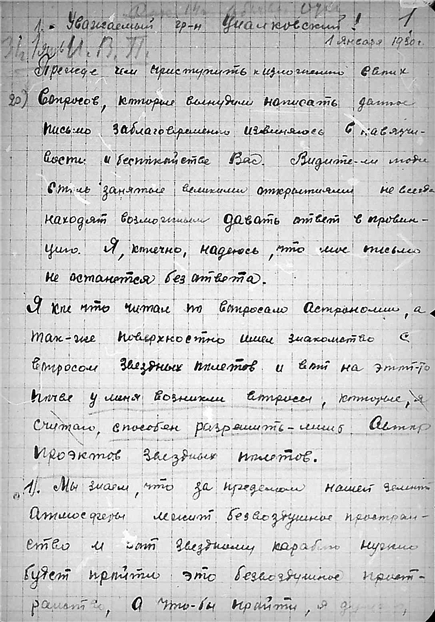 1
1. Уважаемый гр-н Циалковский!
1 Января 1930г.
Прежде чем приступить к изложению своих
20) вопросов, которые вынудили написать данное
письмо заблаговременно извиняюсь в навязчи-
вости и беспокойстве Вас. Видите-ли люди
столь занятые великими открытиями не всегда
находят возможным давать ответ в провин-
цию. Я, конечно, надеюсь, что мое письмо
не останется без ответа.
Я кое что читал по вопросам Астрономии, а
так-же поверхностно имел знакомство с
вопросом звездных полетов и вот на этой-то
почве у меня возникли вопросы, которые, я
считаю, способен разрешить-лишь Автор
Проэктов звездных полетов.
1). Мы знаем, что за пределом нашей земной
Атмосферы лежит безвоздушное простран-
ство и вот звездному кораблю нужно
будет пройти это безвоздушное прост-
ранство, А что-бы пройти, я думаю,